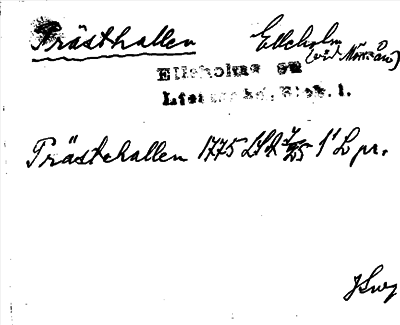 Prästhallen Elleholm
(vid Mörrsån)
Elleholms sn
Listers hd, Blek. l.
Prästehallen 1775 LSA 7/25 1' L pr.
JSwg